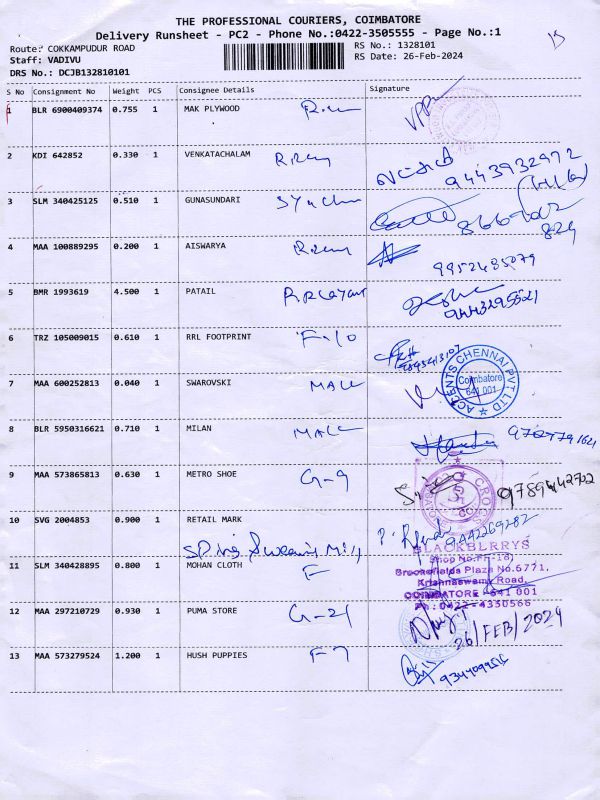 THE PROFESSIONAL COURIERS, COIMBATORE
Delivery Runsheet - PC2 - Phone No.:0422-3505555 - Page No.:1
Route: COKKAMPUDUR ROAD
RS No.: 1328101
Staff: VADIVU
RS Date: 26-Feb-2024
DRS No.: DCJB132810101
S No Consignment No Weight PCS Consignee Details Signature
1 BLR 6900409374 0.755 1 MAK PLYWOOD
2 KDI 642852 0.330 1 VENKATACHALAM
9443932972
3 SLM 340425125 0.510 1 GUNASUNDARI
4 MAA 100889295 0.200 1 AISWARYA
9952485079
5 BMR 1993619 4.500 1 PATAIL
6 TRZ 105009015 0.610 1 RRL FOOTPRINT F-10
7 MAA 600252813 0.040 1 SWAROVSKI MALL
ACCENTS CHENNAI PVT. LTD
Coimbatore
641 001
8 BLR 5950316621 0.710 1 MILAN MALL
9 MAA 573865813 0.630 1 METRO SHOE G-9
10 SVG 2004853 0.900 1 RETAIL MARK
9442269282
BLACKBERRYS
Shop No.FF-18,
Brookefields Plaza No.6771,
Krishnaswamy Road,
COIMBATORE - 641 001
Ph : 0422-4330566
11 SLM 340428895 0.800 1 MOHAN CLOTH F
12 MAA 297210729 0.930 1 PUMA STORE G-21
26/FEB/2024
13 MAA 573279524 1.200 1 HUSH PUPPIES F7